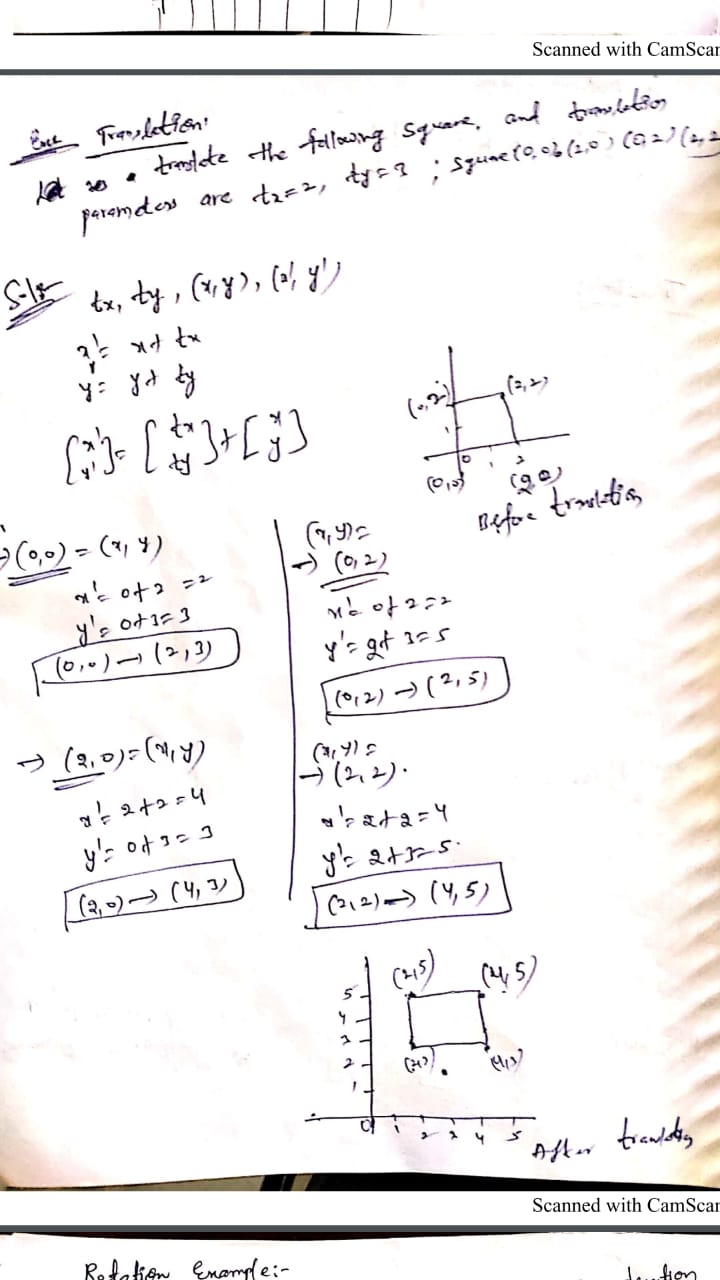 Scanned with CamScan
Translation:
translate the following square, and translation
parameters are tx=2, ty=3 ; square (0,0) (2,0) (0,2) (2,2
Soln
tx, ty, (x,y), (x', y')
x' = x+ tx
y' = y+ ty
[x' y'] = [tx ty] + [x y]
(0,2)
(2,2)
1
0 1 2
(0,0)
(2,0)
Before translation
→ (0,0) = (x, y)
x' = 0+2 = 2
y' = 0+3 = 3
(0,0) → (2,3)
→ (2,0) = (x, y)
x' = 2+2 = 4
y' = 0+3 = 3
(2,0) → (4,3)
(x, y) =
→ (0,2)
x' = 0+2 = 2
y' = 2+3 = 5
(0,2) → (2,5)
(x, y) =
→ (2,2).
x' = 2+2 = 4
y' = 2+3 = 5.
(2,2) → (4,5)
(2,5) (4,5)
5
4
3
2
1
(2,3) (4,3)
0 1 2 3 4 5
After translation
Scanned with CamScan
Rotation Example:-